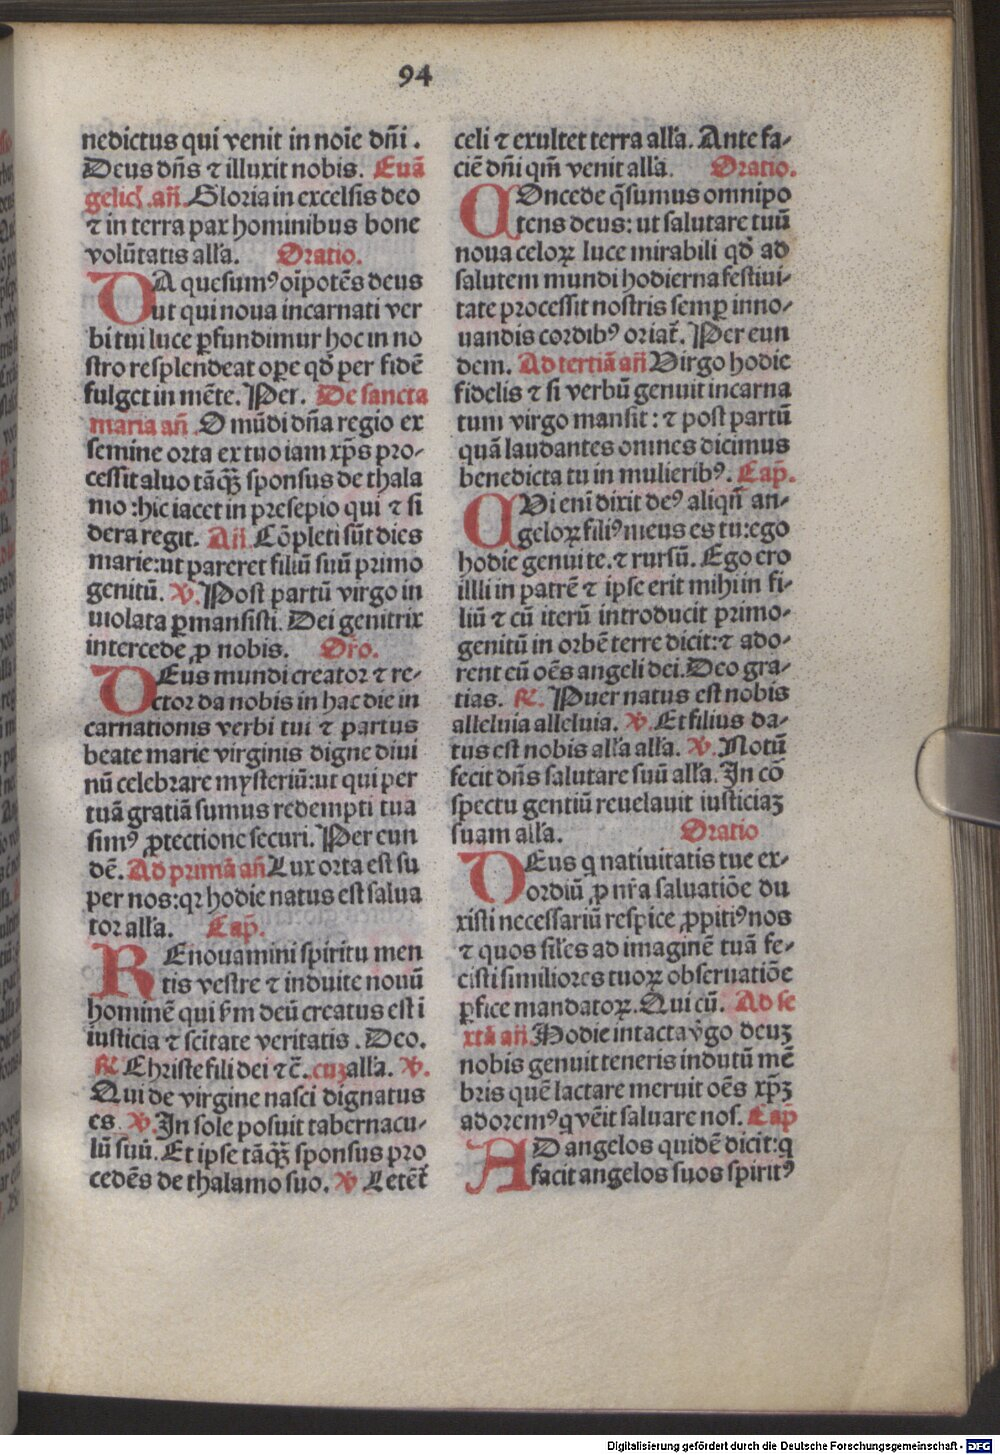 94
nedictus qui venit in noi̅e dn̅i.
Deus dn̅s ⁊ illuxit nobis. Eua̅
gelicꝭ. an̅. Gloria in excelsis deo
⁊ in terra pax hominibus bone
volu̅tatis all'a. Oratio.
DA quesumꝰ oi̅pote̅s deus
ut qui noua incarnati ver
bi tui luce ꝑfundimur hoc in no
stro resplendeat oꝑe qd̅ per fide̅
fulget in me̅te. Per. De sancta
maria an̅ O mu̅di dn̅a regio ex
semine orta ex tuo iam xp̅s pro-
cessit aluo ta̅qꝫ̅ sponsus de thala
mo: hic iacet in presepio qui ⁊ si
dera regit. An̅. Co̅pleti su̅t dies
marie: ut pareret filiu̅ suu̅ primo
genitu̅. ℣. Post partu̅ virgo in
uiolata ꝑmansisti. Dei genitrix
intercede ꝓ nobis. Or̅o.
DEus mundi creator ⁊ re-
ctor da nobis in hac die in
carnationis verbi tui ⁊ partus
beate marie virginis digne diui
nu̅ celebrare mysteriu̅: ut qui per
tua̅ gratia̅ sumus redempti tua
simꝰ ꝓtectione securi. Per eun
de̅. Ad prima̅ an̅ Lux orta est su
per nos: qꝛ hodie natus est salua
tor all'a. Cap̅.
REnouamini spiritu men
tis vestre ⁊ induite nouu̅
homine̅ qui s'm deu̅ creatus est i̅
iusticia ⁊ sc̅itate veritatis. Deo.
℟. Christe fili dei ⁊c̅. cuꝫ all'a. ℣.
Qui de virgine nasci dignatus
es. ℣. In sole posuit tabernacu-
lu̅ suu̅. Et ipse ta̅qꝫ̅ sponsus pro
cede̅s de thalamo suo. ℣ Lete̅t̉
celi ⁊ exultet terra all'a. Ante fa-
cie̅ dn̅i qm̅ venit all'a. Oratio.
COncede q̅sumus omnipo
tens deus: ut salutare tuu̅
noua celoꝝ luce mirabili qd̅ ad
salutem mundi hodierna festiui-
tate processit nostris semꝑ inno-
uandis cordibꝰ oriat̉. Per eun
dem. Ad tertia̅ an̅ Virgo hodie
fidelis ⁊ si verbu̅ genuit incarna
tum virgo mansit: ⁊ post partu̅
qua̅ laudantes omnes dicimus
benedicta tu in mulieribꝰ. Cap̅.
CUi eni̅ dixit deꝰ aliqn̅ an-
geloꝝ filiꝰ meus es tu: ego
hodie genui te. ⁊ rursu̅. Ego ero
illli in patre̅ ⁊ ipse erit mihi in fi-
liu̅ ⁊ cu̅ iteru̅ introducit primo-
genitu̅ in orbe̅ terre dicit: ⁊ ado-
rent eu̅ oe̅s angeli dei. Deo gra-
tias. ℟. Puer natus est nobis
alleluia alleluia. ℣. Et filius da-
tus est nobis all'a all'a. ℣. Notu̅
fecit dn̅s salutare suu̅ all'a. In co̅
spectu gentiu̅ reuelauit iusticiaꝫ
suam all'a. Oratio
DEus q natiuitatis tue ex-
ordiu̅ ꝓ nr̅a saluatio̅e du
xisti necessariu̅ respice ꝓpitiꝰ nos
⁊ quos sil'es ad imagine̅ tua̅ fe-
cisti similiores tuoꝝ obseruatio̅e
ꝑfice mandatoꝝ. Qui cu̅. Ad se
xta̅ an̅ Hodie intacta v̉go deuꝫ
nobis genuit teneris indutu̅ me̅
bris que̅ lactare meruit oe̅s xp̅ꝫ
adoremꝰ q ve̅it saluare nos. Cap̅
AD angelos quide̅ dicit: q
facit angelos suos spiritꝰ
Digitalisierung gefördert durch die Deutsche Forschungsgemeinschaft - DFG